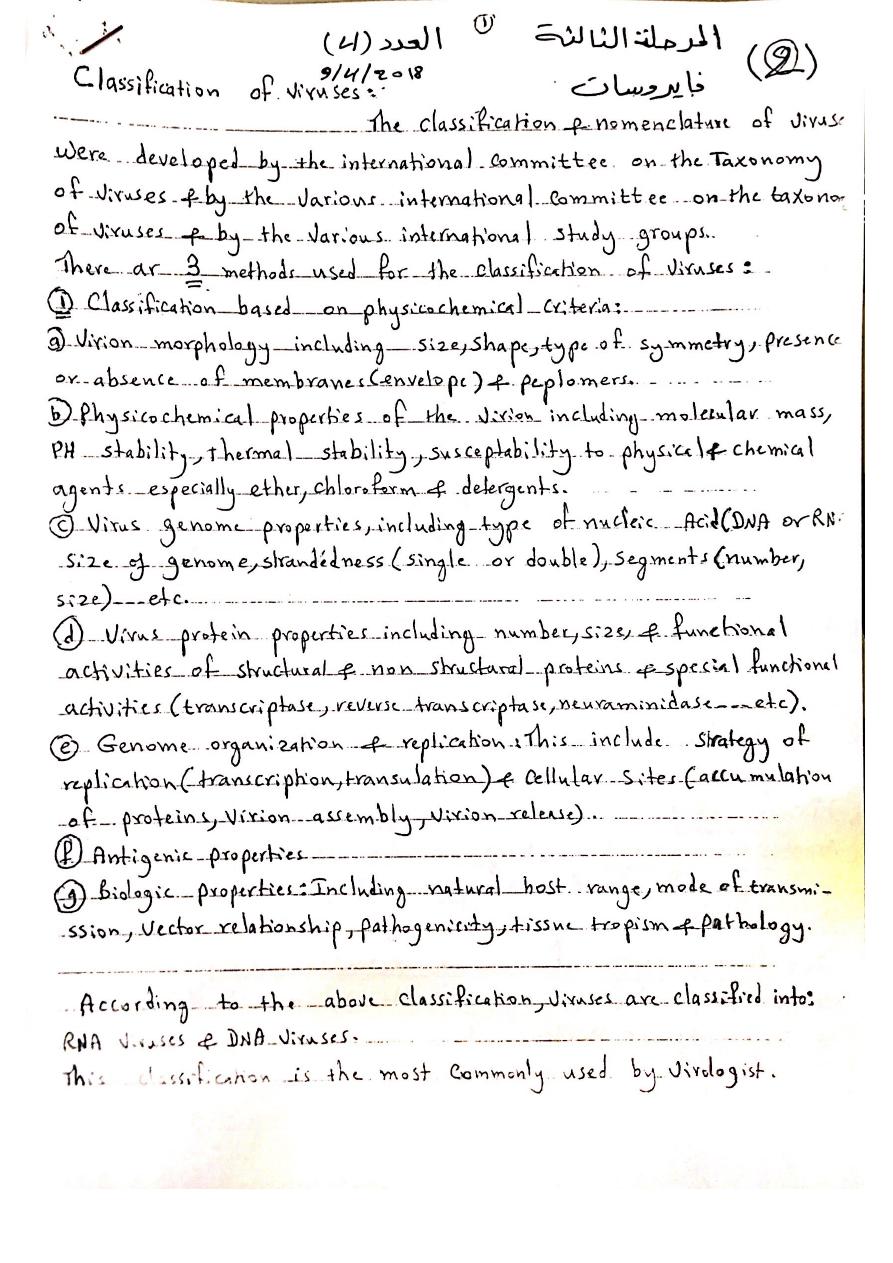 ①
المرحلة الثالثة العدد (4)
(9)
9/4/2018
فايروسات
Classification of viruses:
The classification & nomenclature of viruse
were developed by the international committee on the Taxonomy
of viruses & by the various international committee on the taxono
of viruses & by the various international study groups.
There ar 3 methods used for the classification of viruses:
① Classification based on physicochemical criteria:
ⓐ Virion morphology including size, shape, type of symmetry, presence
or absence of membranes (envelope) & peplomers.
ⓑ Physicochemical properties of the virion including molecular mass,
PH stability, thermal stability, susceptability to physical & chemical
agents especially ether, chloroform & detergents.
ⓒ Virus genome properties, including type of nucleic Acid (DNA or RN
size of genome, strandedness (single or double), segments (number,
size)---etc.
ⓓ Virus protein properties including number, size, & functional
activities of structural & non structural proteins & special functional
activities (transcriptase, reverse transcriptase, neuraminidase---etc).
ⓔ Genome organization & replication: This include strategy of
replication (transcription, transulation) & cellular sites (accumulation
of proteins, virion assembly, virion release).
ⓕ Antigenic properties
ⓖ Biologic properties: Including natural host range, mode of transmi-
ssion, vector relationship, pathogenicity, tissue tropism & pathology.
According to the above classification, viruses are classified into:
RNA viruses & DNA viruses.
This classification is the most commonly used by virologist.